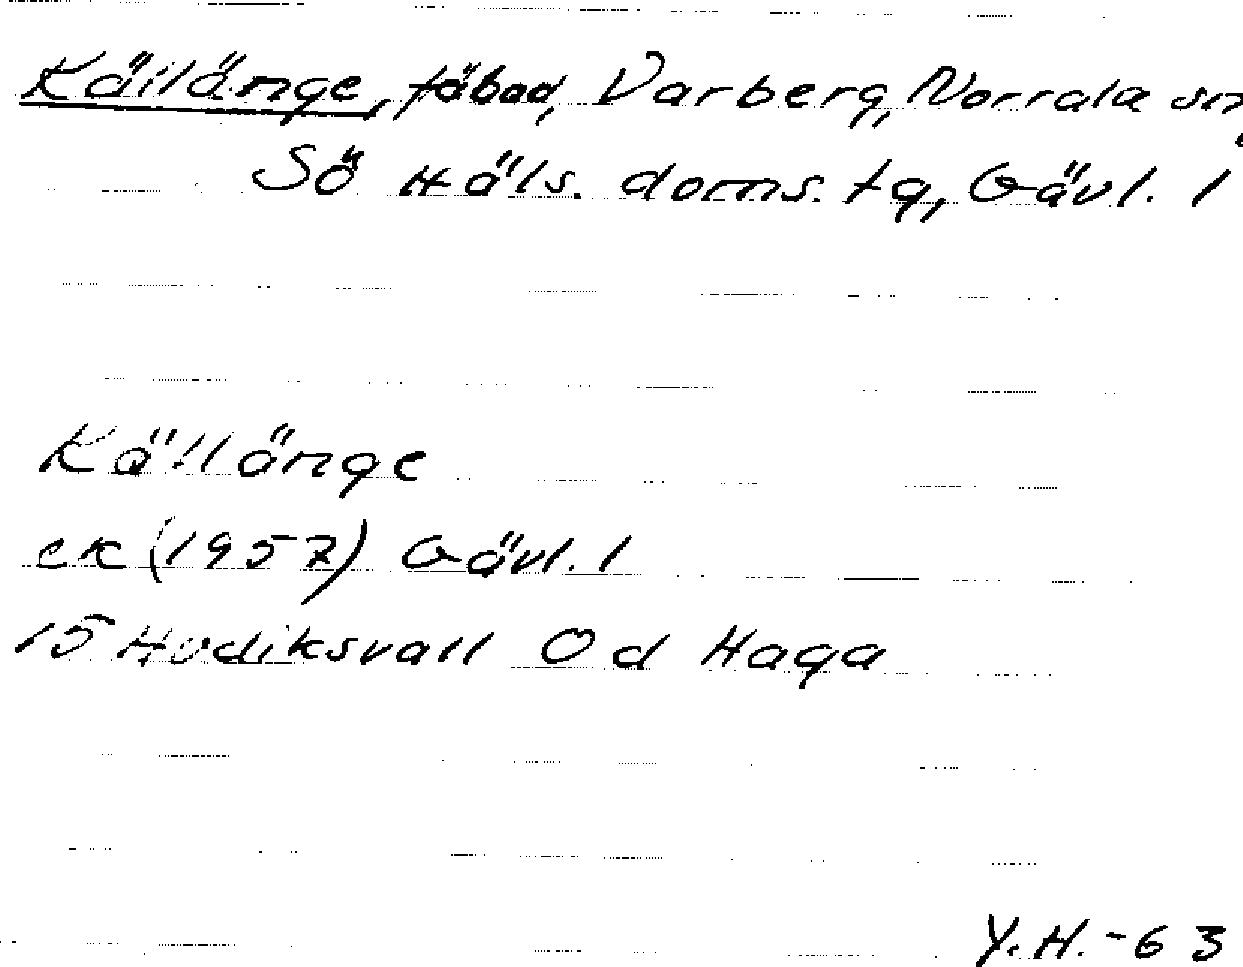 Källänge, fäbod, Varberg, Norrala sn,
Sö Häls. doms. tg, Gävl. l
Källänge
ek (1957) Gävl. l
15 Hudiksvall Od Haga
Y.H.-63